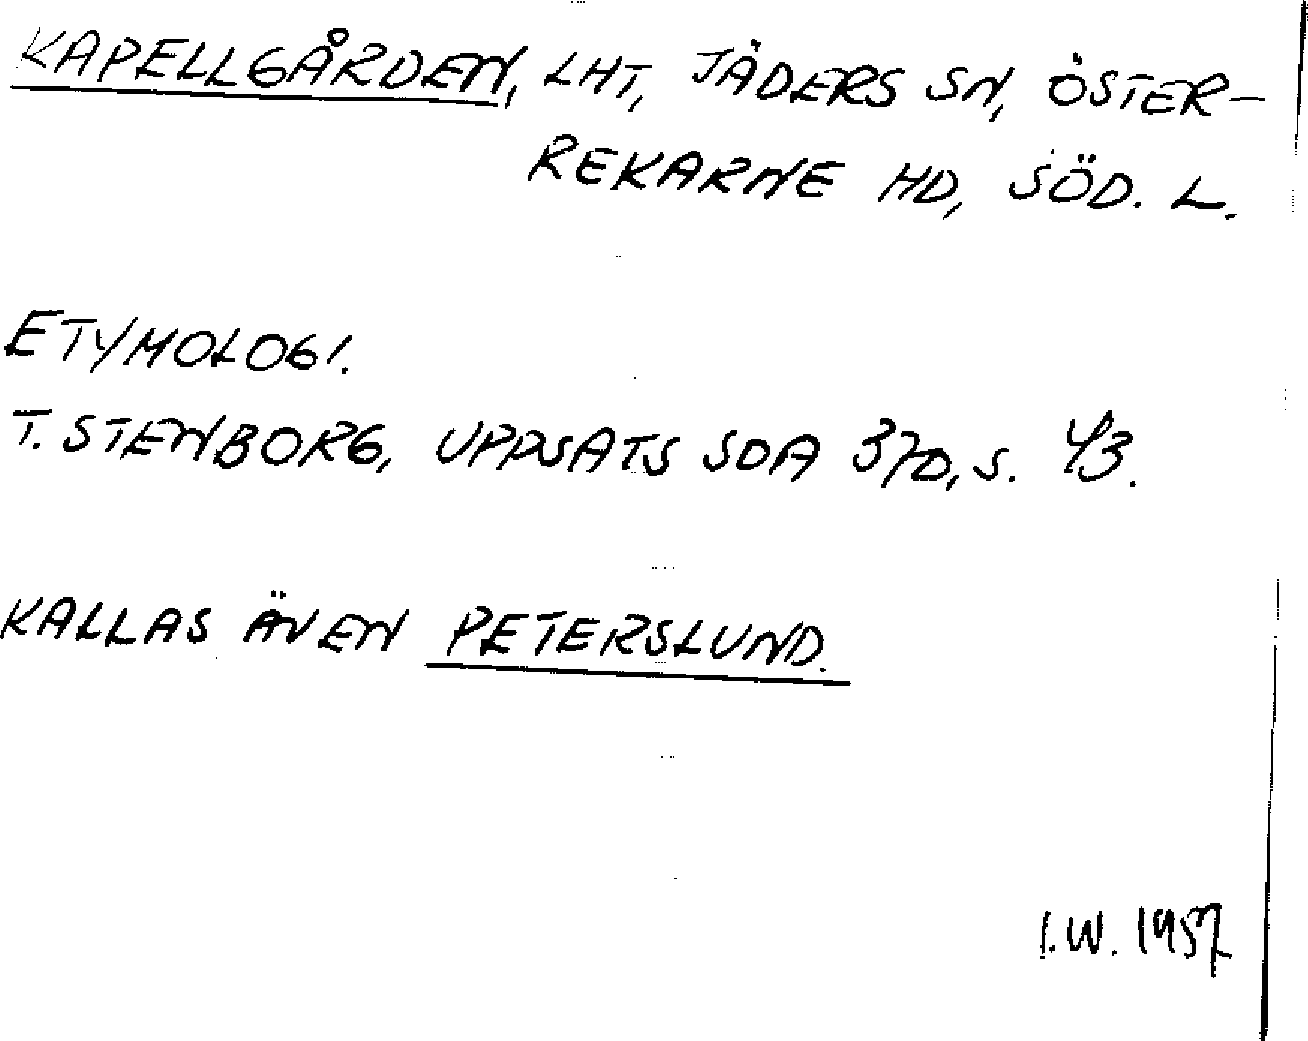 KAPELLGÅRDEN, LHT, JÄDERS SN, ÖSTER-
REKARNE HD, SÖD. L.
ETYMOLOGI.
T. STENBORG, UPPSATS SOA 370, S. 43.
KALLAS ÄVEN PETERSLUND.
I.W. 1957